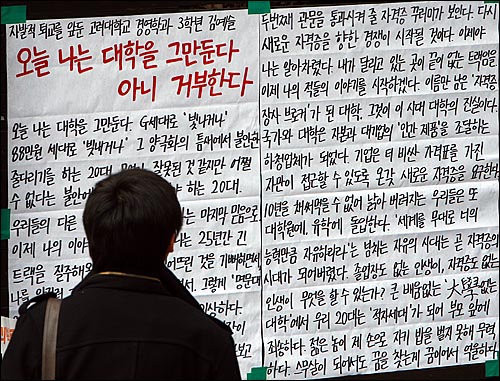 자발적 퇴교를 앞둔 고려대학교 경영학과 3학년 김예슬
오늘 나는 대학을 그만둔다
아니 거부한다
오늘 나는 대학을 그만둔다. G세대로 '빛나거나'
88만원 세대로 '빚내거나' 그 양극화의 틈새에서 불안한
줄타기를 하는 20대. 잘못된 것 같지만 어쩔
수 없다는 불안에 하는 20대.
우리들의 다른 는 마지막 믿음으로
이제 나의 이야 는 25년간 긴
트랙을 질주해 것을 기뻐하면서
나를 서, 그렇게 '명문대
이상하다
두번째 관문을 통과시켜 줄 자격증 꾸러미가 보인다. 다시
새로운 자격증을 향한 경쟁이 시작될 것이다. 이제야
나는 알아차렸다. 내가 달리고 있는 곳이 끝이 없는 트랙임을
이제 나의 적들의 이야기를 시작하겠다. 이름만 남은 '자격증
장사 브로커'가 된 대학. 그것이 이 시대 대학의 진실이다.
국가와 대학은 자본과 대기업의 '인간 제품'을 조달하는
하청업체가 되었다. 기업은 더 비싼 가격표를 가진
자만이 접근할 수 있도록 온갖 새로운 자격증을 요구한다
10년을 채 써먹을 수 없어 낡아 버려지는 우리들은 또
대학원에, 유학에 돌입한다. '세계를 무대로 너의
능력만큼 자유하리라'는 넘치는 자유의 시대는 곧 자격증의
시대가 되어버렸다. 졸업장도 없는 인생이, 자격증도 없는
인생이 무엇을 할 수 있는가? 큰 배움없는 '大學없는
대학'에서 우리 20대는 '적자세대'가 되어 부모 앞에
죄송하다. 젊은 놈이 제 손으로 자기 밥을 벌지 못해 무력
하다. 스무살이 되어서도 꿈을 찾는게 꿈이어서 억울하다